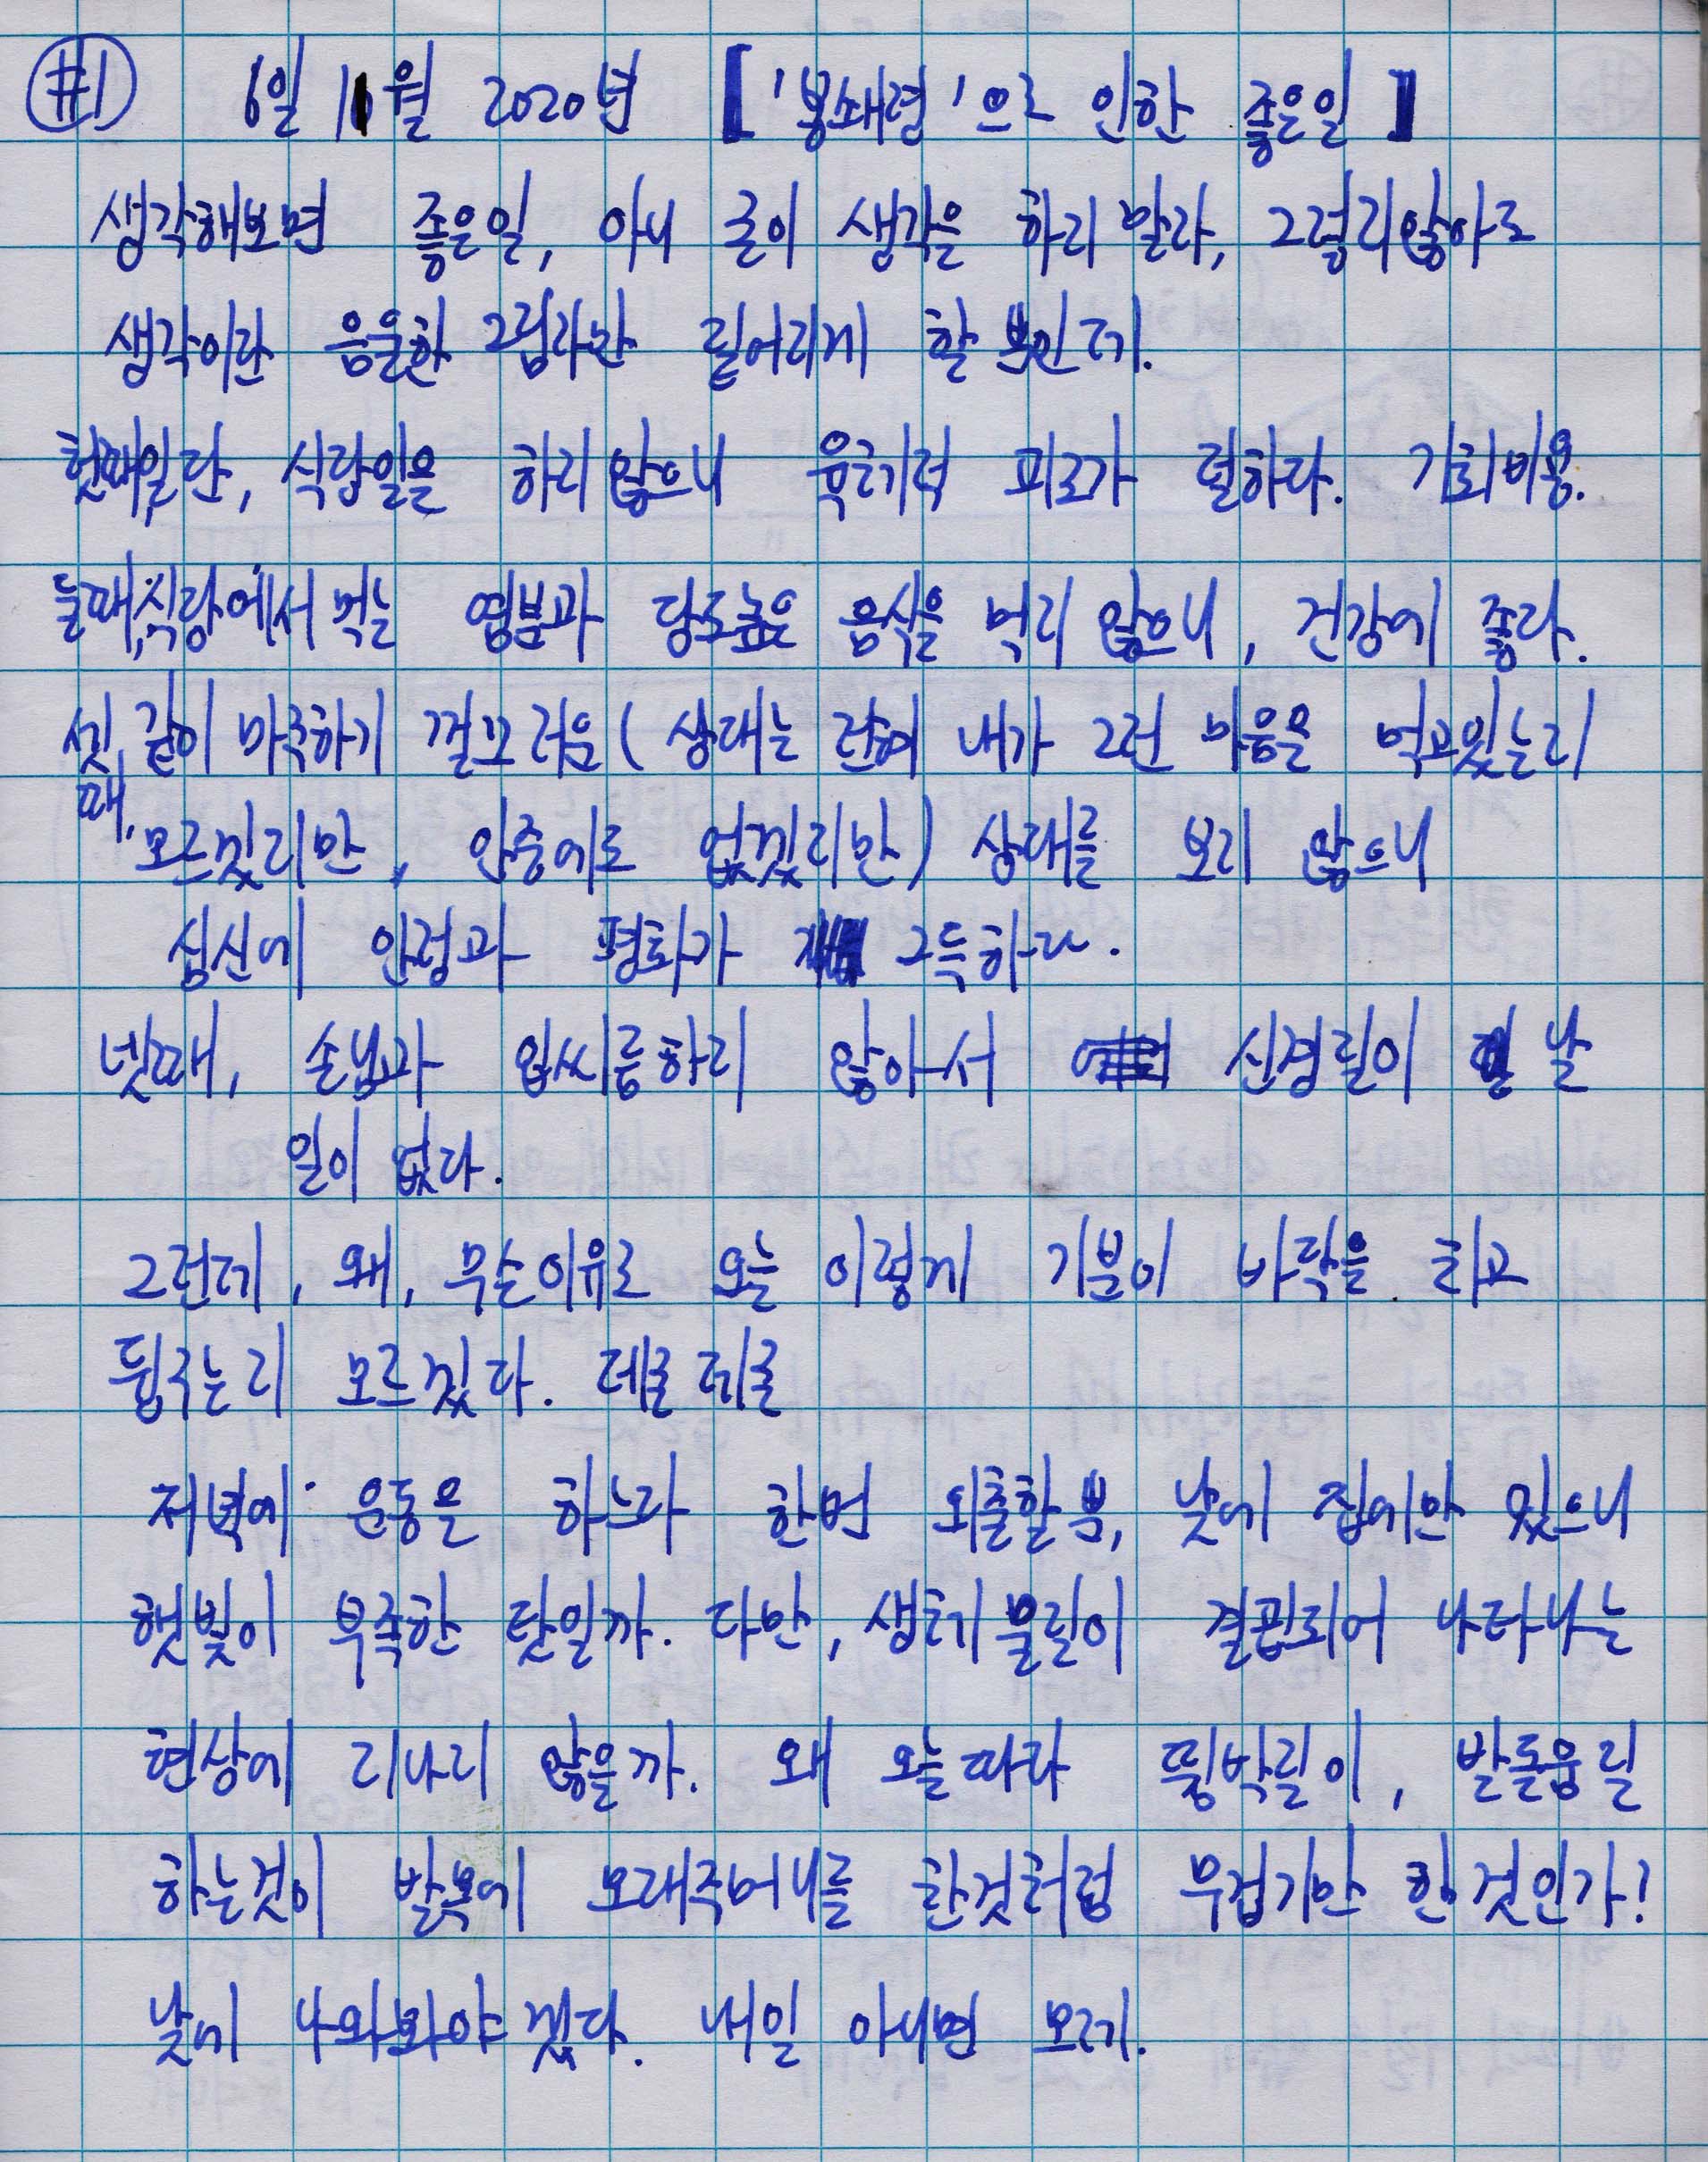 #1 6일 11월 2020년 ['봉쇄령'으로 인한 좋은일]
생각해보면 좋은일, 아니 굳이 생각을 하지 말자, 그렇지않아도
생각이란 음울한 그림자만 짙어지게 할 뿐인데.
첫째일단, 식당일을 하지 않으니 육체적 피로가 덜하다. 기회비용.
둘째, 식당에서 먹는 염분과 당도높은 음식을 먹지 않으니, 건강에 좋다.
셋째, 같이 마주하기 껄끄러운 (상대는 전혀 내가 그런 마음을 먹고있는지
모르겠지만, 안중에도 없겠지만) 상대를 보지 않으니
심신에 안정과 평화가 그득하다.
넷째, 손님과 입씨름하지 않아서 신경질이 날
일이 없다.
그런데, 왜, 무슨이유로 오늘 이렇게 기분이 바닥을 치고
뒹구는지 모르겠다. 데굴데굴
저녁에 운동을 하느라 한번 외출할 뿐, 낮에 집에만 있으니
햇빛이 부족한 탓일까. 다만, 생체 물질이 결핍되어 나타나는
현상에 지나지 않을까. 왜 오늘따라 뜀박질이, 발돋움질
하는것이 발목에 모래주머니를 찬것처럼 무겁기만 한 것인가!
낮에 나와봐야겠다. 내일 아니면 모레.